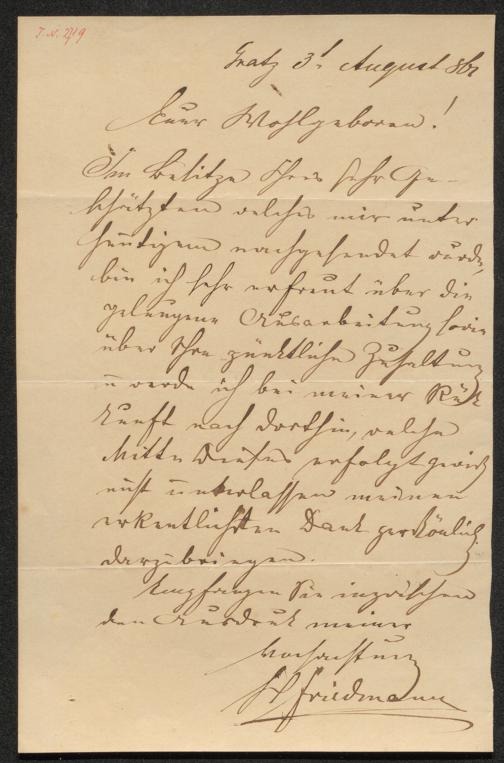 I. N. 2719
Gratz 3t August 861
Euer Wohlgeboren!
Im Besitze Ihres sehr Ge-
schätzten welches mir unter
heutigem nachgesendet wurde,
bin ich sehr erfreut über die
gelungene Ausarbeitung sowie
über Ihre pünktliche Zuhaltung
u werde ich bei meiner Rük
kunft nach dorthin, welche
Mitte dieses erfolgt gewiß
nicht unterlassen meinen
erkentlichsten Dank persönlich
darzubringen.
Empfangen Sie inzwischen
den Ausdruk meiner
Hochachtung
Friedmann